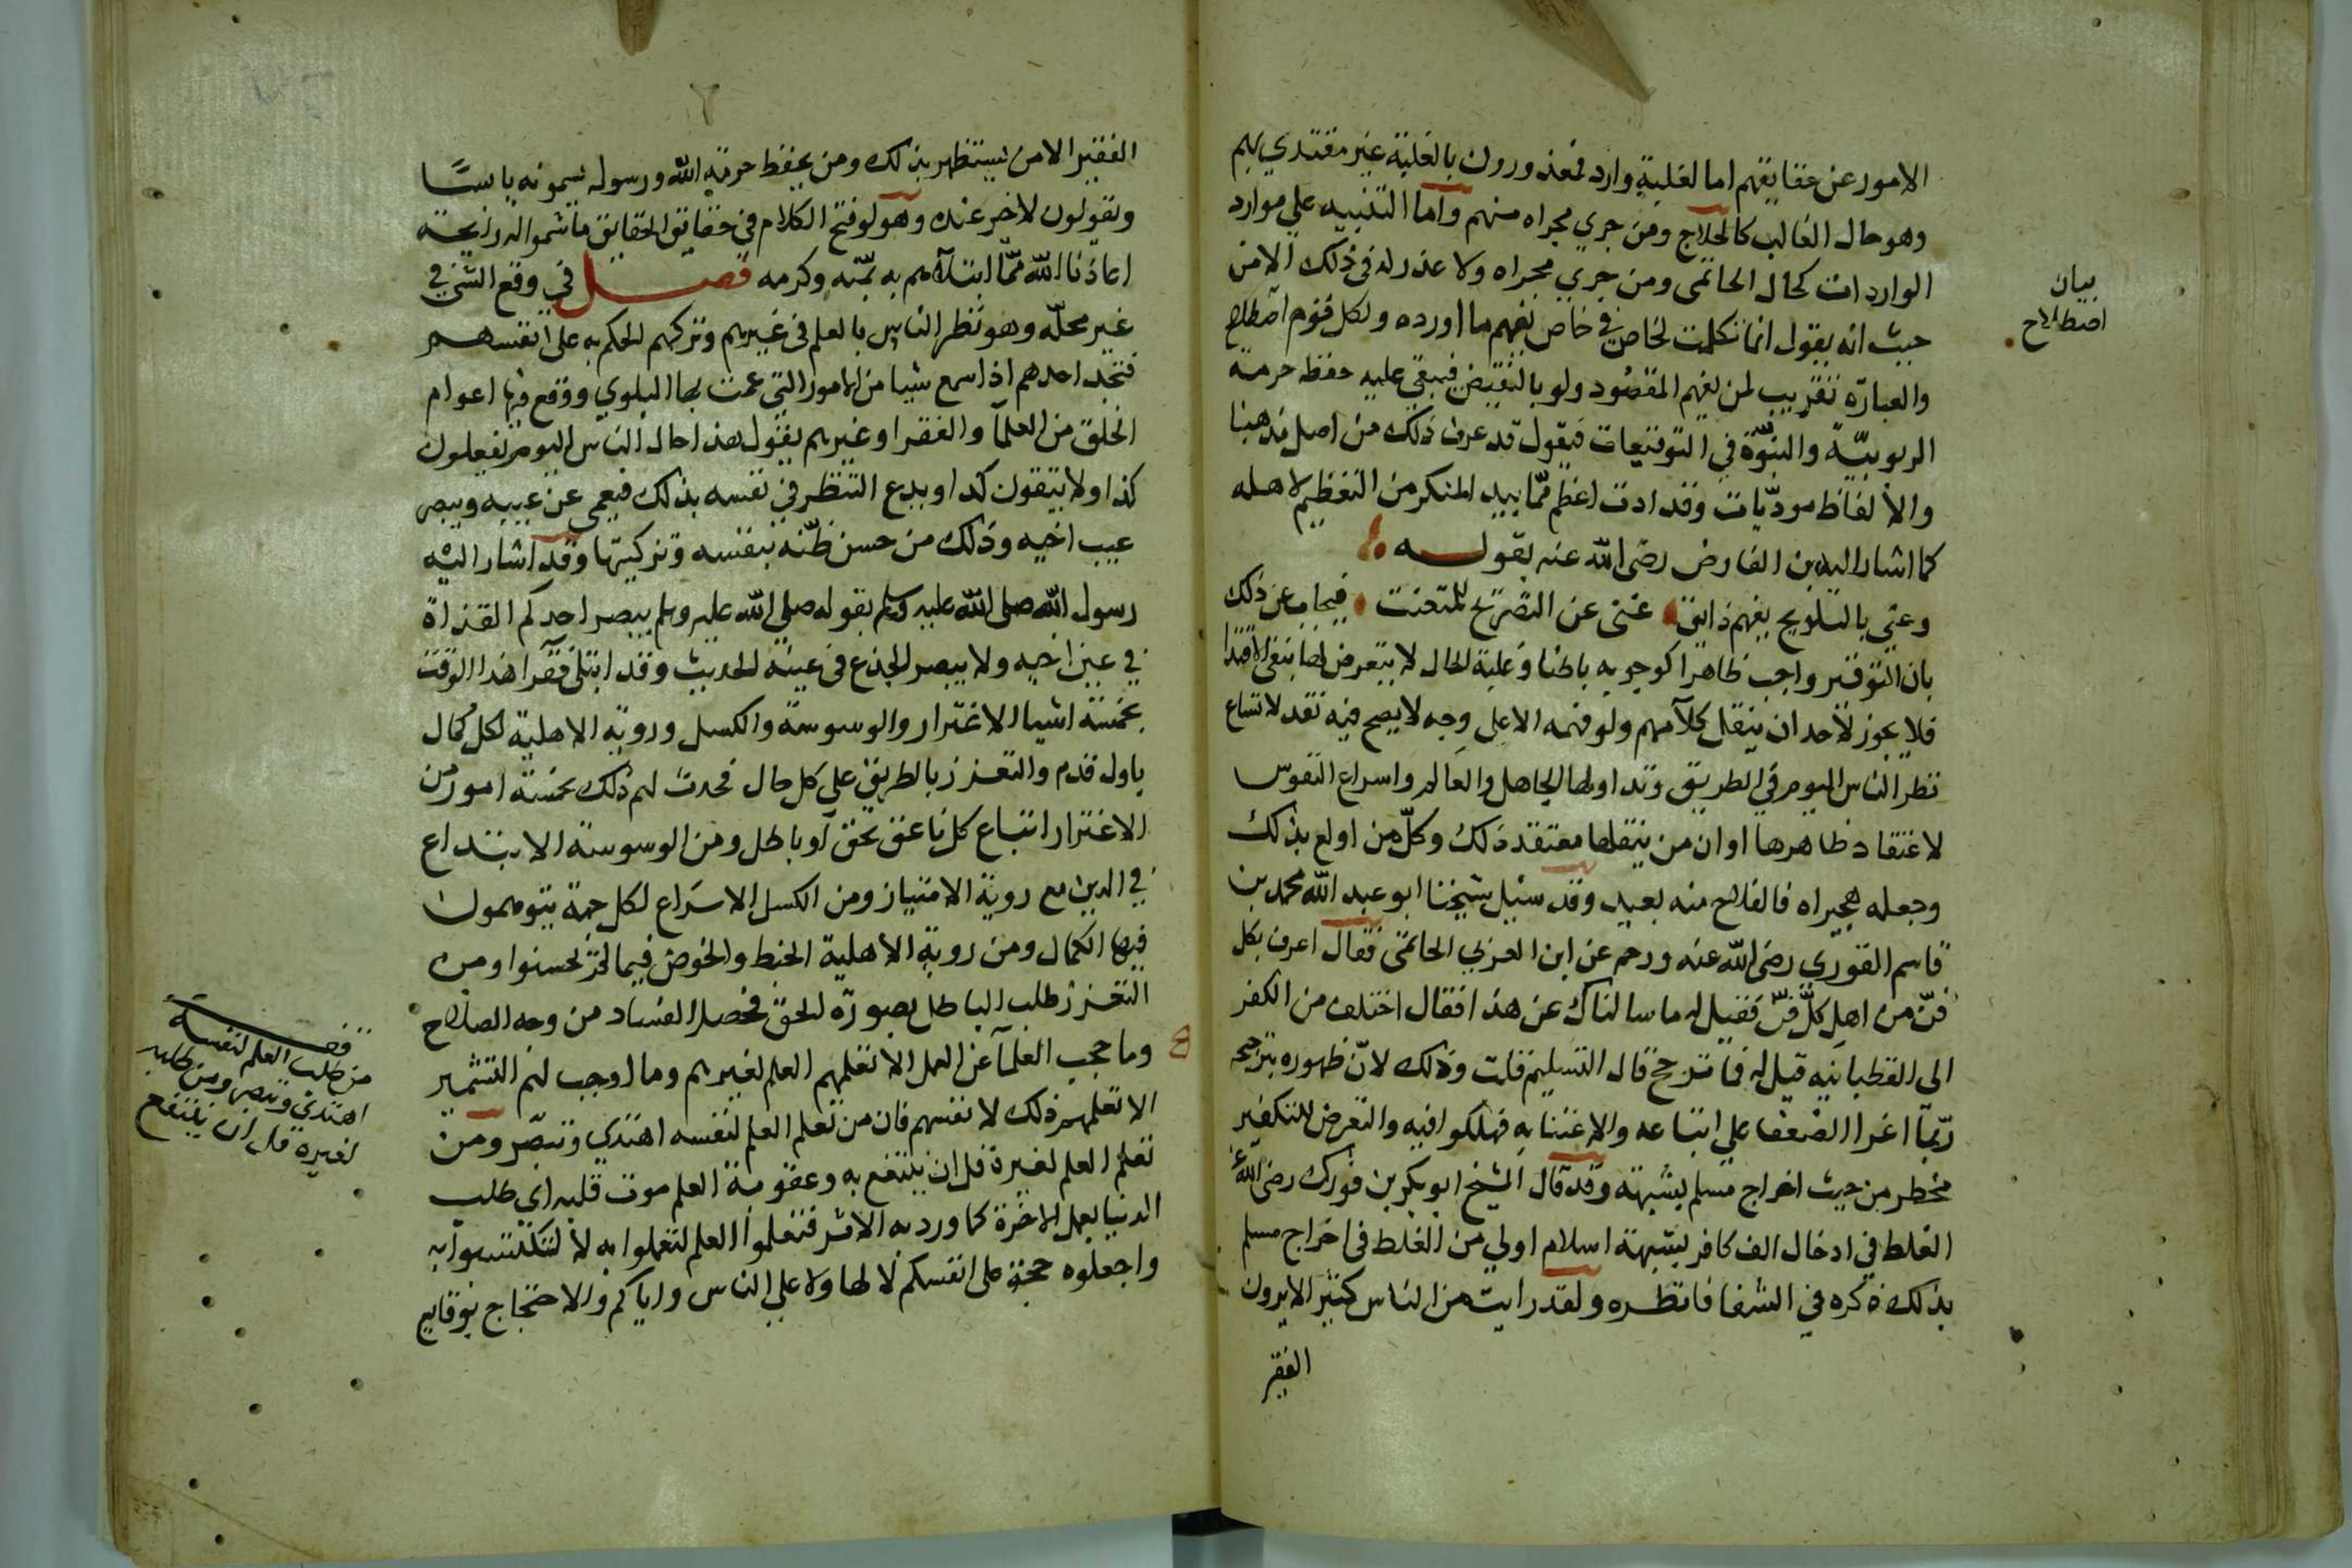 الامور عن حقايقهم اما لغلبة وارد فمعذورون بالغلبة غير مقتدي بهم
وهو حال الغالب كالحلاج ومن جري مجراه منهم واما التنبيه علي موارد
الواردات كحال الحاتمى ومن جري مجراه ولا عذر له فى ذلك الا من
حيث انه يقول انما تكلمت لخاص في خاص يفهم ما اورده ولكل قوم اصطلاح
والعبارة تقريب لمن يفهم المقصود ولو بالنقيض فيبقي عليه حفظ حرمة
الربوبيّة والنبوّة في التوقيعات فيقول قد عرف ذلك من اصل مذهبنا
والالفاظ موديّات وقد ادت اعظم ممّا بيد المنكر من التعظيم لاهله
كما اشار اليه بن الفارض رضى الله عنه بقولـــه
وعني بالتلويح يفهم ذايق غنى عن التصريح للمتعنت فيجاب عن ذلك
بان التوقير واجب ظاهرا كوجوبه باطنا وغلبة الحال لا يتعرض لها بنفى الاقتدا
فلا يجوز لاحد ان ينقل كلامهم ولو فهمه الا على وجه لا يصح فيه نقد لاتساع
نظر الناس اليوم في الطريق وتداولها الجاهل والعالم واسراع النفوس
لاعتقاد ظاهرها او ان من ينقلها معتقد ذلك وكلّ من اولع بذلك
وجعله هجيراه فالفلاح منه بعيد وقد سئيل شيخنا ابو عبد الله محمد بن
قاسم القوري رضى الله عنه ورحم عن ابن العربي الحاتمى فقال اعرف بكل
فنّ من اهل كلّ فنّ فقيل له ما سالناك عن هذا فقال اختلف من الكفر
الى القطبانيه قيل له فما ترجح قال التسليم قلت وذلك لانّ ظهوره بترجيحه
ربّما اغرا الضعفا علي اتباعه والاعتنا به فهلكوا فيه والتعرض للتكفير
مخطر من حيث اخراج مسلم بشبهة وقد قال الشيخ ابو بكر بن فورك رضى الله عنه
الغلط في ادخال الف كافر بشبهة اسلام اولي من الغلط فى اخراج مسلم
بذلك ذكره في الشفا فانظره ولقد رايت من الناس كثير الا يرون
الفقير
بيان
اصطلاح
الفقير الا من يستظهر بذلك ومن يحفظ حرمة الله ورسوله يسمونه يابسًا
ويقولون لا خير عنده وهو لو فتح الكلام في حقايق الحقايق ما شموا له رايحة
اعاذنا الله ممّا ابتلاهم به بمنّه وكرمه فصـــل في وقع الشي في
غير محلّه وهو نظر الناس بالعلم فى غيرهم وتركهم الحكم به على انفسهم
فتجد احدهم اذا سمع شيا من الامور التي عمت بها البلوي ووقع فيها اعوام
الخلق من العلمآ والفقرا وغيرهم يقول هذا حال الناس اليوم يفعلون
كذا ولا يتقون كذا ويدع النظر في نفسه بذلك فيعمي عن عيبه ويبصر
عيب اخيه وذلك من حسن ظنّه بنفسه وتزكيتها وقد اشار اليه
رسول الله صلى الله عليه وسلم بقوله صلي الله عليه وسلم يبصر احدكم القذاة
في عين اخيه ولا يبصر الجذع فى عينه الحديث وقد ابتلى فقرآ هذا الوقت
بخمسة اشيا الاغترار والوسوسة والكسل وروية الاهلية لكل كمال
باول قدم والتعزز بالطريق علي كل حال فحدث لهم ذلك بخمسة امور من
الاغترار اتباع كل ناعق بحق او باطل ومن الوسوسة الابتداع
في الدين مع روية الامتياز ومن الكسل الاسراع لكل جهة يتوهمون
فيها الكمال ومن روية الاهلية الخبط والخوض فيما لم يحسنوا ومن
التعزز طلب الباطل بصورة الحق فحصل الفساد من وجه الصلاح
وما حجب العلمآ عن العمل الا تعلمهم العلم لغيرهم وما اوجب لهم التشمير
الا تعلمهم ذلك لانفسهم فان من تعلم العلم لنفسه اهتدي وتبصّر ومن
تعلم العلم لغيره قل ان ينتفع به وعقوبة العلم موت قلبه اي طلب
الدنيا بعمل الاخرة كما ورد به الاثر فتعلموا العلم لتعملوا به لا لتكتسبوا به
واجعلوه حجة على انفسكم لا لها ولا علي الناس واياكم والاحتجاج بوقايع
فـــ
من طلب العلم لنفسه
اهتدي وتبصر ومن طلبه
لغيره قل ان ينتفع